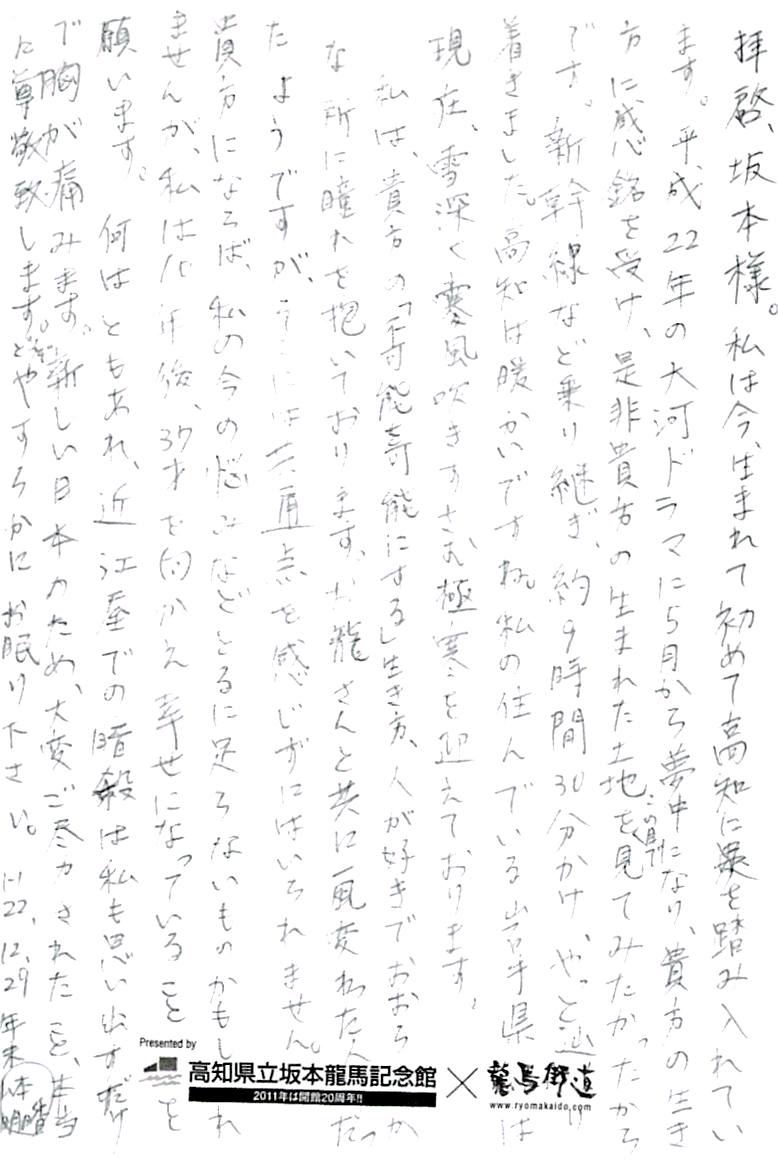 拝啓、坂本様。私は今、生まれて初めて高知に足を踏み入れてい
ます。平成22年の大河ドラマに5月から夢中になり、貴方の生き
方に感銘を受け、是非貴方の生まれた土地をこの目で見てみたかったから
です。新幹線など乗り継ぎ、約9時間30分かけ、やっと辿り
着きました。高知は暖かいですね。私の住んでいる岩手県は
現在、雪深く寒風吹きすさむ極寒を迎えております。
私は、貴方の「不可能を可能にする」生き方、人が好きでおおらか
な所に憧れを抱いております。お龍さんと共に一風変わった人だっ
たようですが、そこには共通点を感じずにはいられません。
貴方にならば、私の今の悩みなどとるに足らないものかもしれ
ませんが、私は10年後、37才を向かえ幸せになっていることを
願います。何はともあれ、近江屋での暗殺は私も思い出すだけ
で胸が痛みます。新しい日本のため、大変ご尽力されたこと、本当
に尊敬致します。どうぞやすらかにお眠り下さい。H22.12.29 年末
Presented by
高知県立坂本龍馬記念館×龍馬街道
2011年は開館20周年!!
www.ryomakaido.com